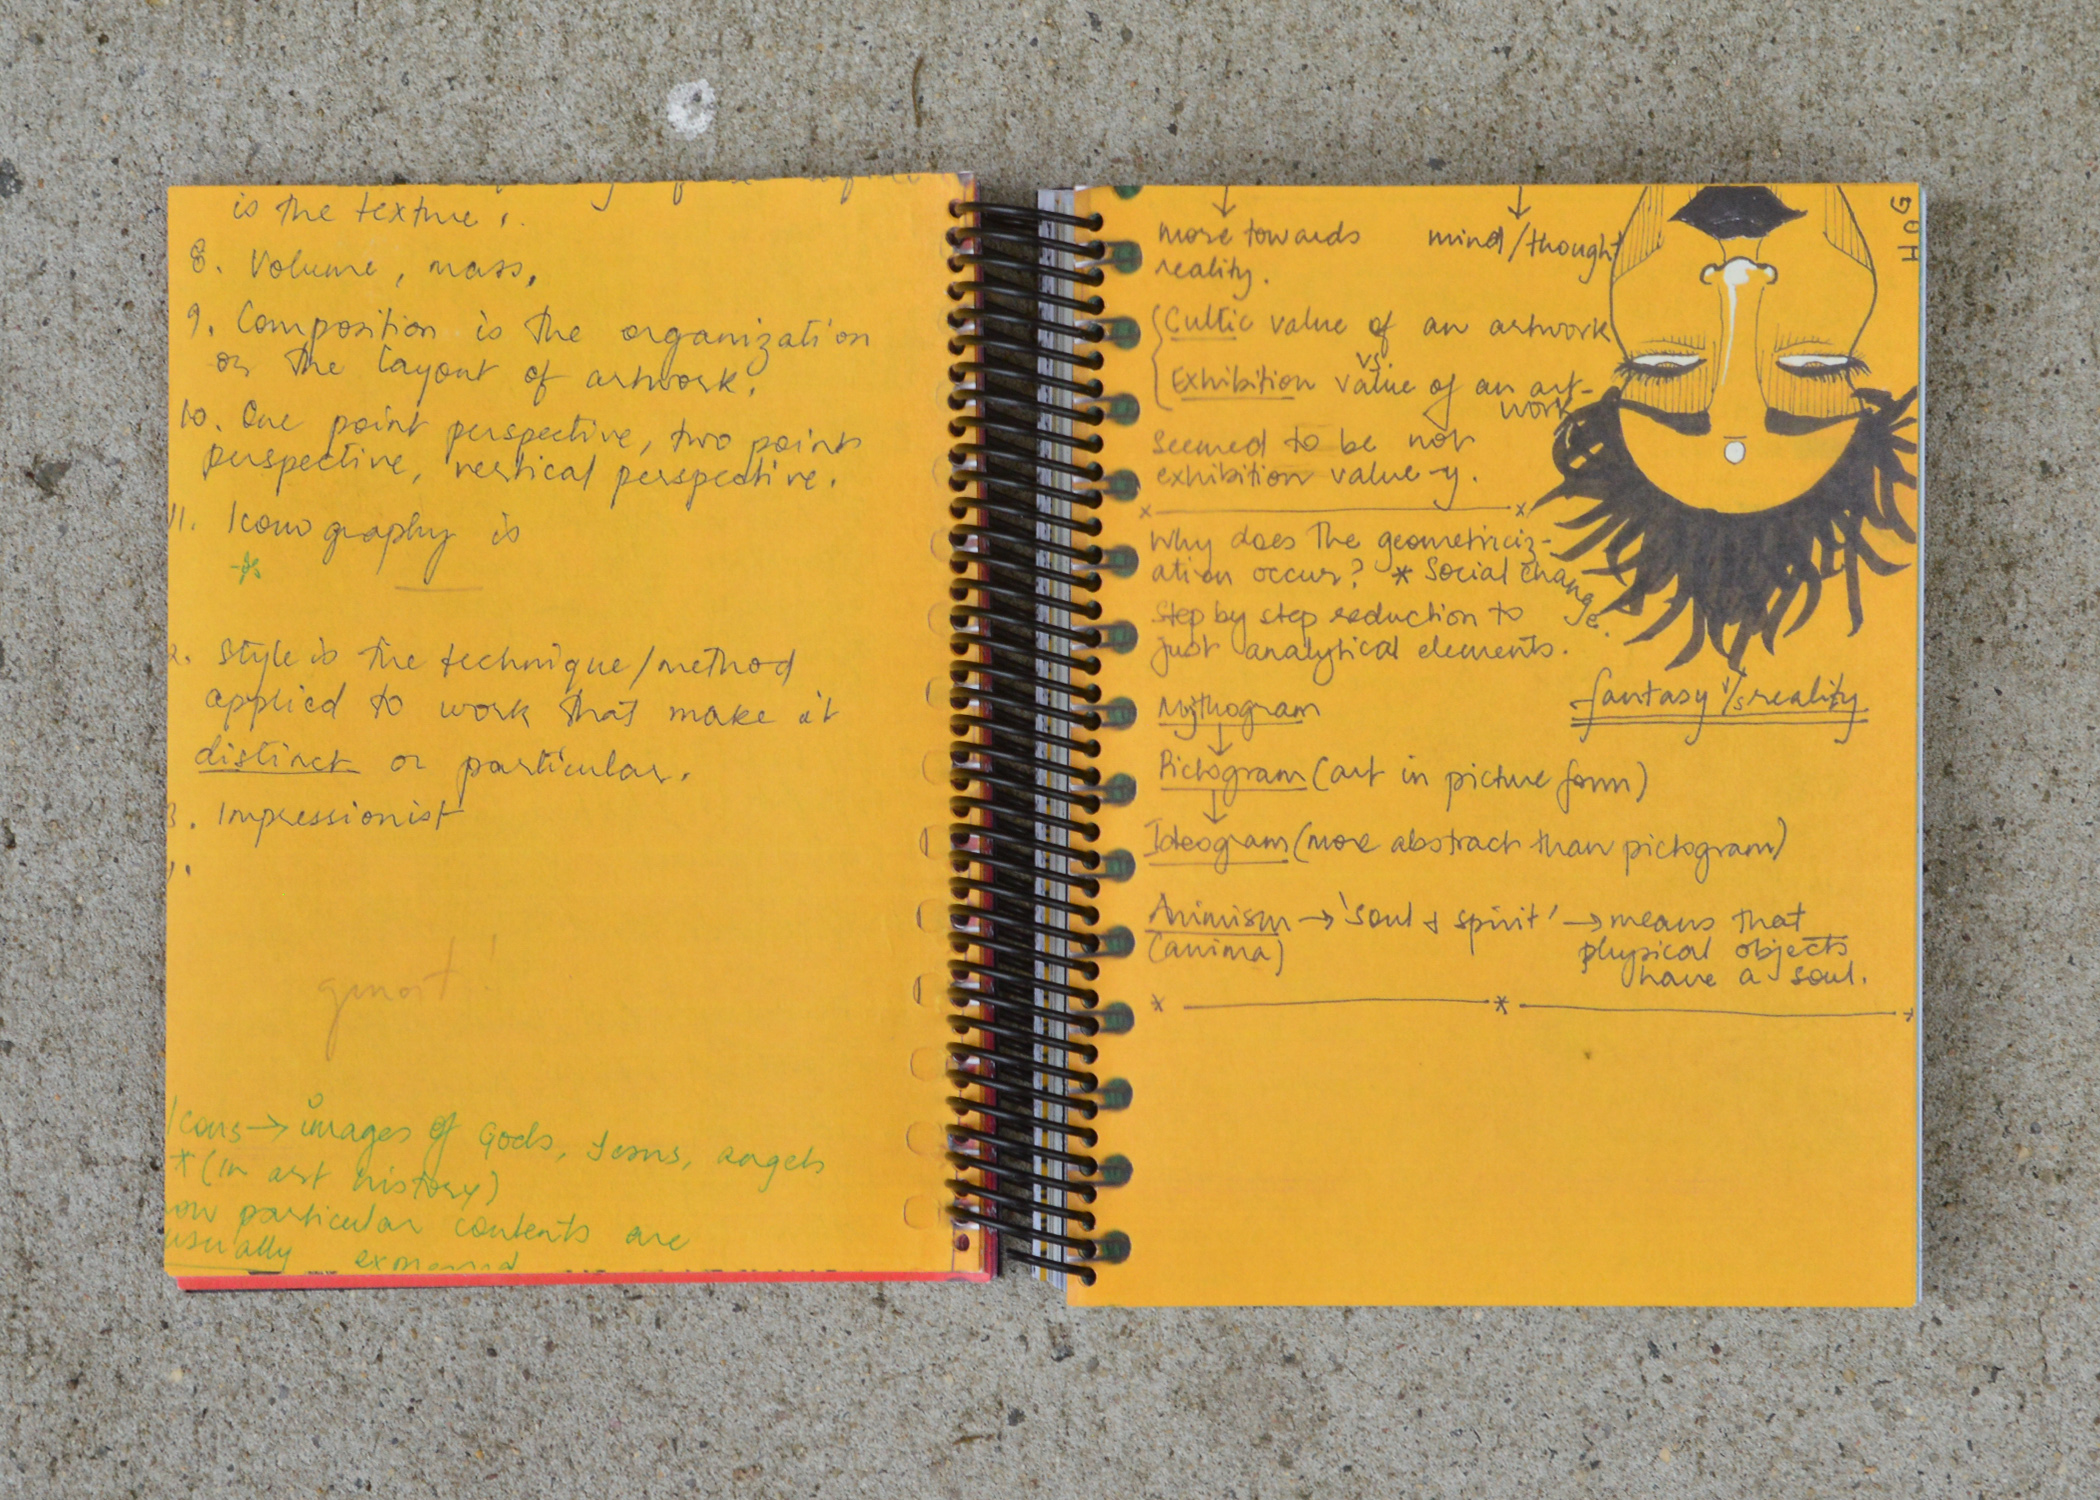 is the texture.
8. Volume, mass,
9. Composition is the organization
or the layout of artwork.
10. One point perspective, two point
perspective, vertical perspective.
11. Iconography is
2. Style is the technique/method
applied to work that make it
distinct or particular.
3. Impressionist
Icons → images of Gods, Jesus, angels
* (in art history)
particular contents are
usually
more towards
reality.
mind/thought
Cultic value of an artwork
vs.
Exhibition value of an art-
work
seemed to be not
exhibition value-y.
Why does the geometriciz-
ation occur? * Social change.
Step by step reduction to
just analytical elements.
fantasy v/s reality
Mythogram
↓
Pictogram (art in picture form)
↓
Ideogram (more abstract than pictogram)
Animism → 'soul & spirit' → means that
(anima)
physical objects
have a soul.